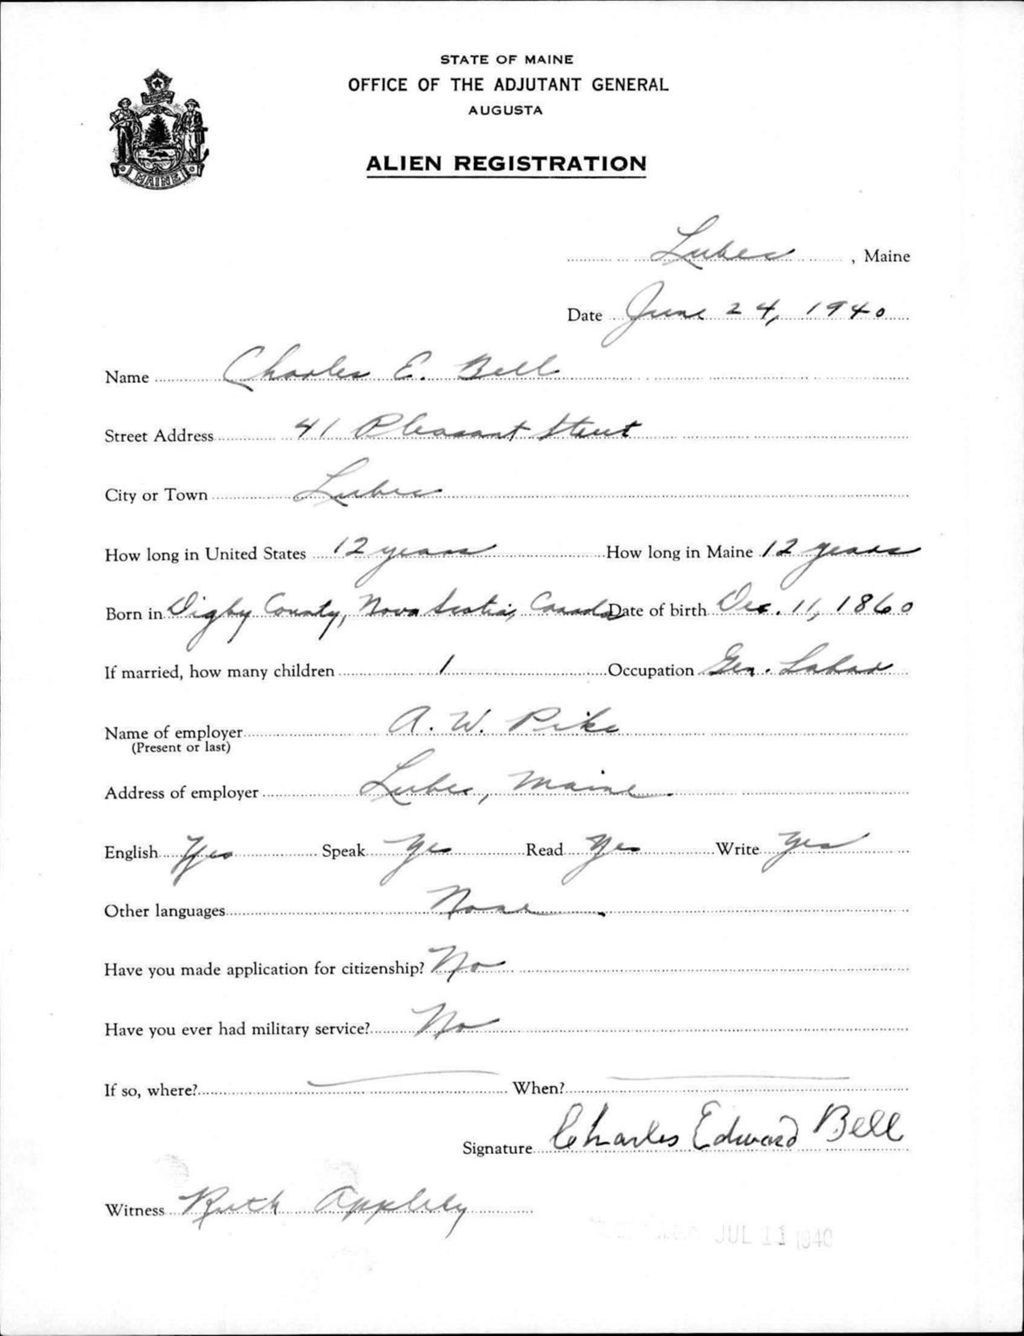 STATE OF MAINE
OFFICE OF THE ADJUTANT GENERAL
AUGUSTA
MAINE
ALIEN REGISTRATION
Lubec, Maine
Date June 24, 1940
Name Charles E. Bell
Street Address 41 Pleasant Street
City or Town Lubec
How long in United States 12 years How long in Maine 12 years
Born in Digby County, Nova Scotia, Canada Date of birth Dec. 11, 1860
If married, how many children 1 Occupation Gen. Labor
Name of employer A. W. Pike
(Present or last)
Address of employer Lubec, Maine.
English Yes Speak Yes Read Yes Write Yes
Other languages None.
Have you made application for citizenship? No
Have you ever had military service? No
If so, where? When?
Signature Charles Edward Bell
Witness Ruth Appleby
JUL 11 1940